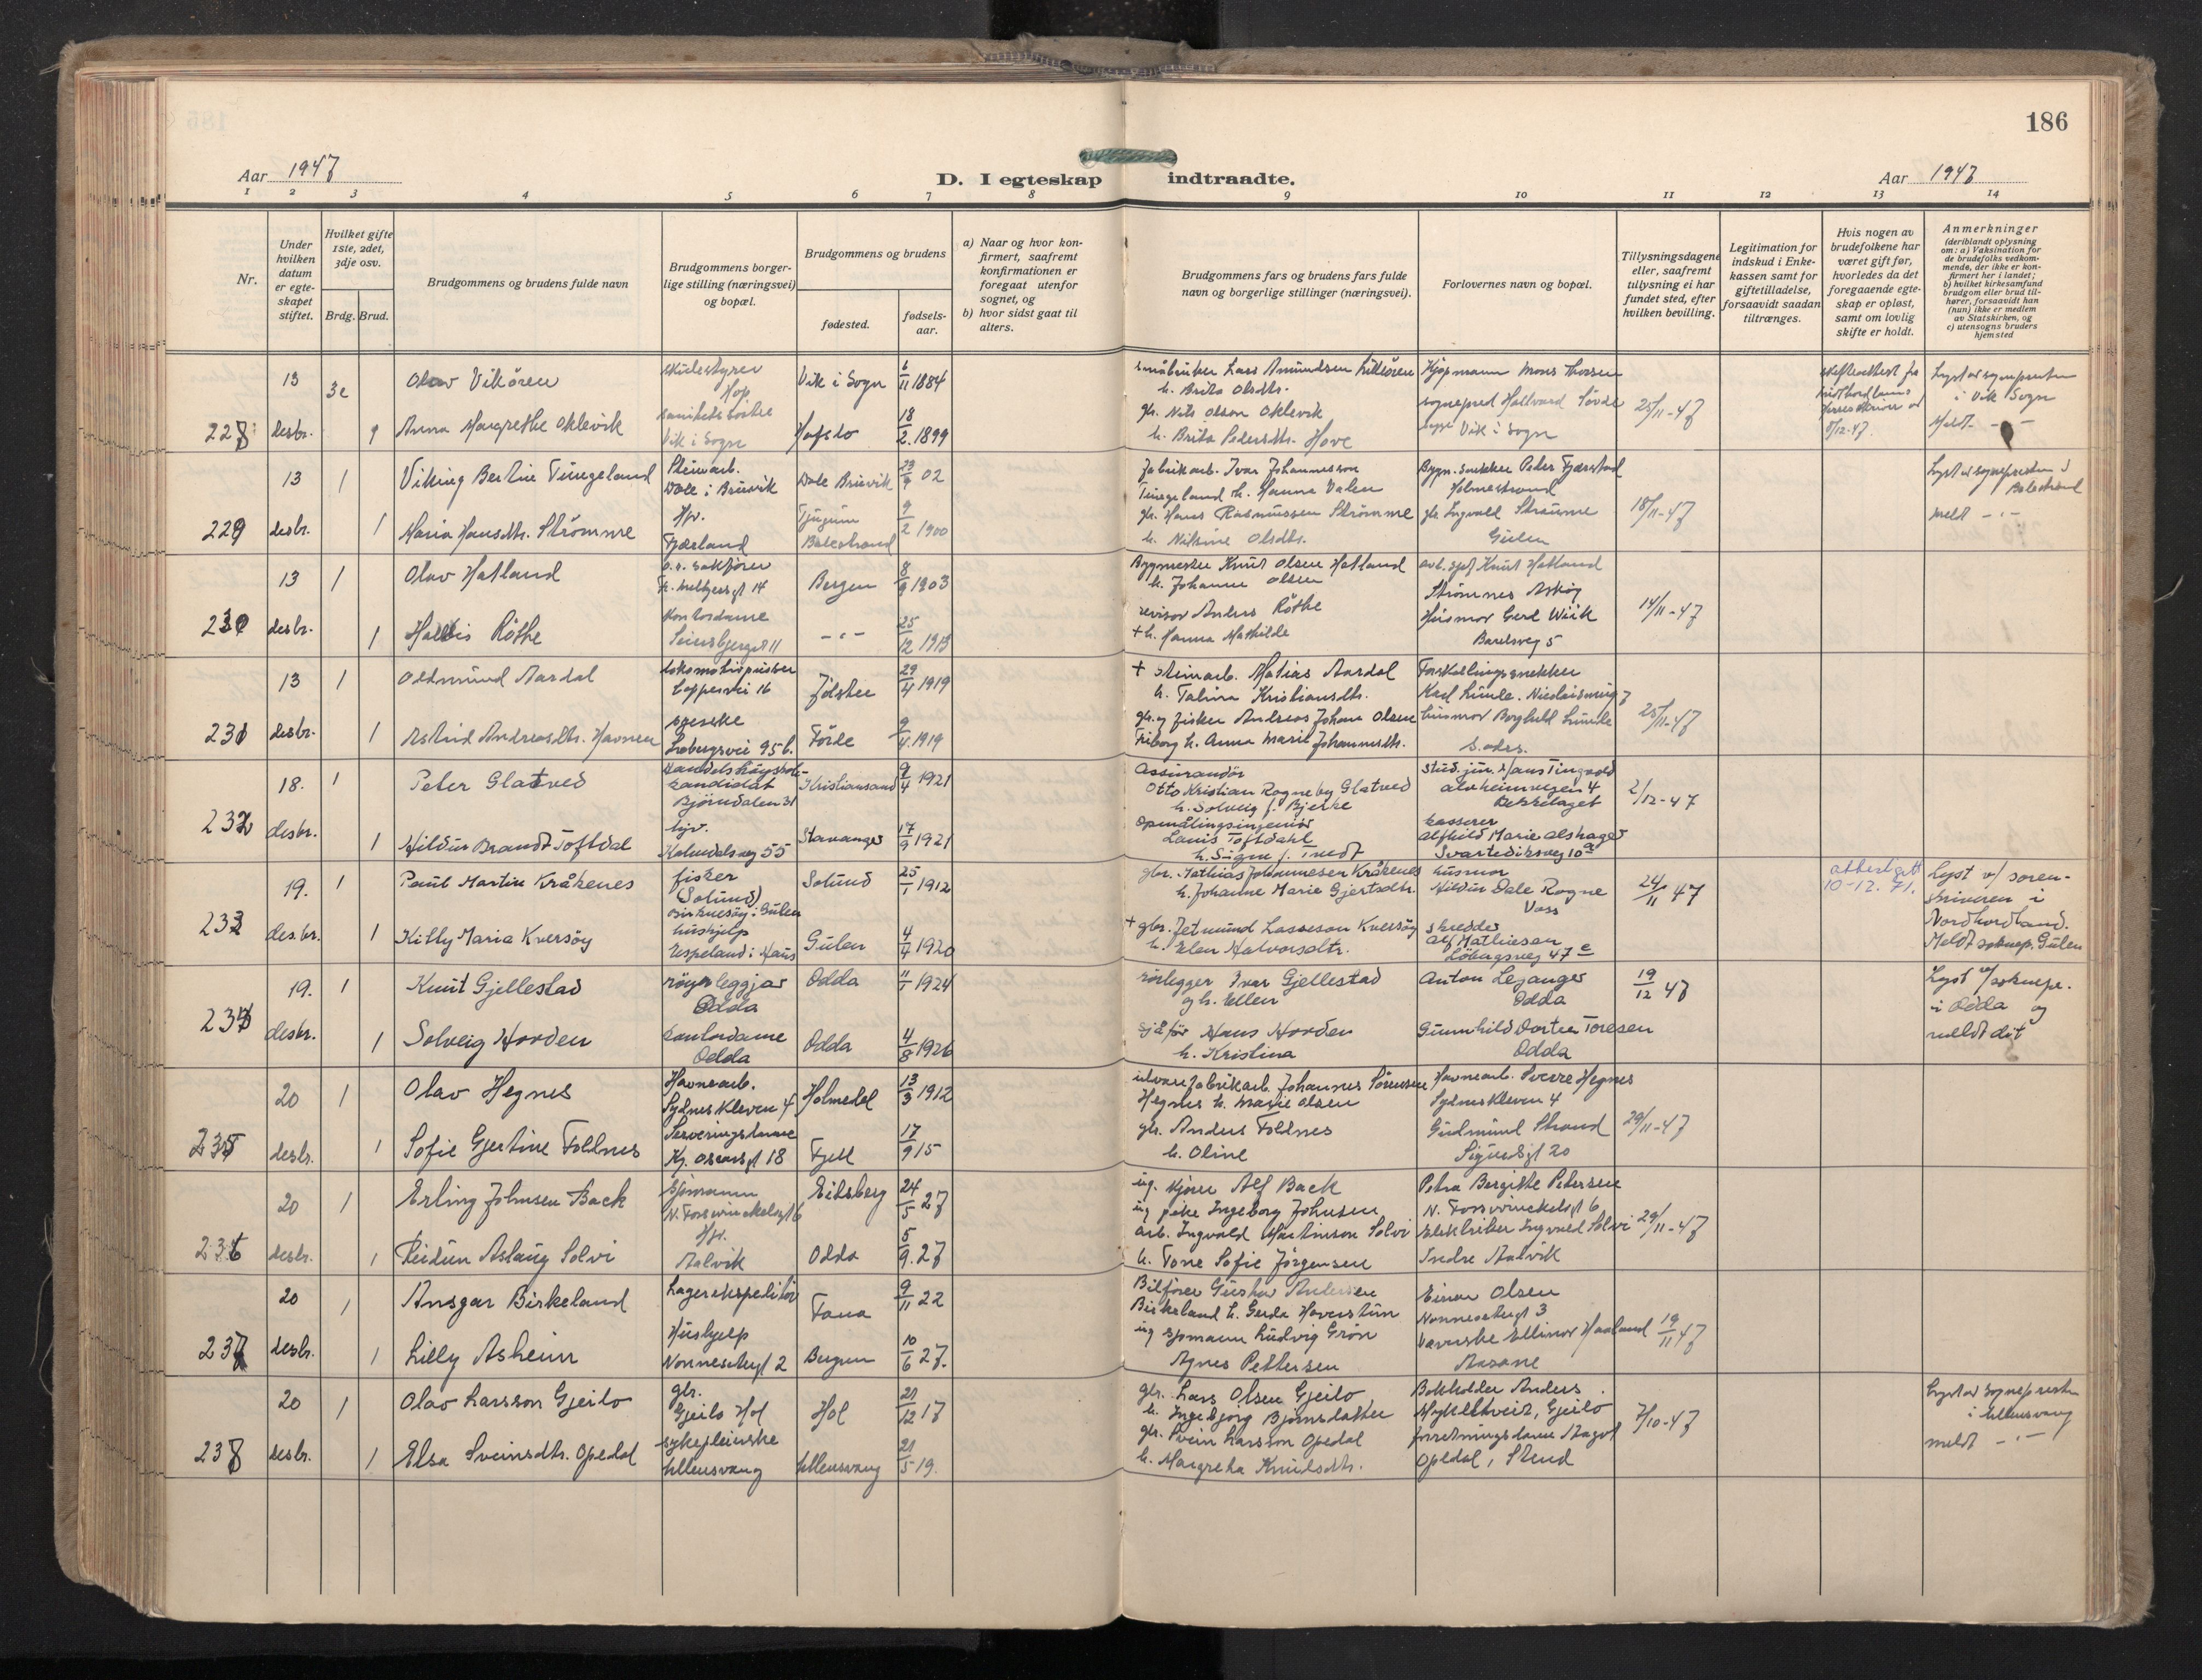 186
Aar 1947
D. I egteskap indtraadte.
Aar 1947
1 2 3 4 5 6 7 8 9 10 11 12 13 14
Nr.
Under hvilken datum er egteskapet stiftet.
Hvilket gifte 1ste, 2det, 3dje osv.
Brdg. Brud.
Brudgommens og brudens fulde navn
Brudgommens borgerlige stilling (næringsvei) og bopæl.
Brudgommens og brudens
fødested.
fødselsaar.
a) Naar og hvor konfirmert, saafremt konfirmationen er foregaat utenfor sognet, og
b) hvor sidst gaat til alters.
Brudgommens fars og brudens fars fulde navn og borgerlige stillinger (næringsvei).
Forlovernes navn og bopæl.
Tillysningsdagene eller, saafremt tillysning ei har fundet sted, efter hvilken bevilling.
Legitimation for indskud i Enkekassen samt for giftetilladelse, forsaavidt saadan tiltrænges.
Hvis nogen av brudefolkene har været gift før, hvorledes da det foregaaende egteskap er opløst, samt om lovlig skifte er holdt.
Anmerkninger
(deriblandt oplysning om: a) Vaksination for de brudefolks vedkommende, der ikke er konfirmert her i landet; b) hvilket kirkesamfund brudgom eller brud tilhører, forsaavidt han (hun) ikke er medlem av Statskirken, og c) utensogns bruders hjemsted
228 13 desbr. Olav Vikøren
Hop
Vik i Sogn 6/11 1884
Anna Margrethe Oklevik
Vik i Sogn
Hafslo 18/2 1899
småbruker Lars Amundsen
h. Brita Olsdtr.
gbr. Nils Olson Oklevik
h. Brita Pedersdtr. Hove
Kjøpmann Mons
sognepred Hallvard
Vik i Sogn
25/11-47
Lyst av sognepresten
i Vik Sogn
Meldt -"-
229 13 desbr. 1 Viking Bertin Tungeland
Steinarb.
Dale i Bruvik
Dale Bruvik 23/9 02
1 Maria Hansdtr. Strømme
Hjv.
Fjærland
Tjugum
Balestrand 9/2 1900
fabrikarb. Ivar Johannesson
Tungeland h. Hanna Valen
gbr. Hans Rasmussen Strømme
h. Nilsine Olsdtr.
Bygn.snekker Peder Fjærestad
Holmestrand
gbr. Ingvald Straume
Gulen
18/11-47
Lyst av sognepresten i
Balestrand
meldt -"-
230 13 desbr. 1 Olav Hatland
o.r. sakfører
Bergen 8/9 1903
1 Røthe
Kontordame
-"- 25/12 1913
Byggmester Knut Olsen Hatland
h. Johanne Olsen
revisor Anders Røthe
+ h. Hanna Mathilde
Knut Hatland
Strømnes Askøy
Husmor Gerd Wiik
5
14/11-47
231 13 desbr. 1 Oddmund Aardal
Lokomotivpusser
16
Jølster 29/4 1919
1 Astrid Andreasdtr. Havnen
95 b.
Førde 9/4 1919
+ Steinarb. Matias Aardal
h. Talina Kristiansdtr.
gbr. og fisker Andreas Johan Olsen
h. Anna Marie Johannesdtr.
Forskallingssnekker
Karl Lunde. 7
husmor Borghild Lunde
s. adrs.
25/11-47
232 18. desbr. 1 Peter Glatved
kandidat
Bjørndalen 31
Kristiansand 9/4 1921
1 Hildur Brandt Toftdal
hjv.
Kalvedalsveg 55
Stavanger 17/9 1921
Assurandør
Otto Kristian Rogneby Glatved
h. Solveig f. Bjerke
Opmålingsingeniør
Lauis Toftdahl
h. Signe f. Tvedt
Stud. jur. Hans Tingvold
Alvheimvegen 4
Bekkelaget
kasserer
Alfhild Marie Alshager
Svartediksveg 10a
2/12-47
233 19. des.br. 1 Paul Martin Kråkenes
fisker
(Solund)
i Gulen
Solund 25/1 1912
1 Killy Maria Kversøy
hushjelp
Espeland i Haus
Gulen 4/4 1920
gbr. Mathias Johannesen Kråkenes
h. Johanne Marie Gjertsdtr.
+ gbr. Jetmund Lasseson Kversøy
h. Elen Halvorsdtr.
husmor
Hildur Dale Rogne
Voss
skredder
Alf Mathiesen
Løbergsveg 47 e
24/11 47
attest gitt
10-12.71.
Lyst v/ soren-
skriveren i
Nordhordland.
Meldt soknep. Gulen
234 19. desbr. 1 Knut Gjellestad
røyrleggjar
Odda
Odda 11/1 1924
1 Solveig Horden
kontordame
Odda
Odda 4/8 1926
rørlegger Ivar Gjellestad
og h. Ellen
sjåfør Hans Horden
h. Kristina
Anton Leganger
Odda
Gunnhild Dortea Toresen
Odda
19/12 47
Lyst v/soknepr.
i Odda og
meldt dit
235 20 desbr. 1 Olav Hegnes
Havnearb.
Sydneskleven 4
Holmedal 13/3 1912
1 Sofie Gjertine Foldnes
Serveringsdame
18
Fjell 17/9 15
fabrikarb. Johannes Sørensen
Hegnes h. Marie Olsen
gbr. Anders Foldnes
h. Oline
Havnearb. Sverre Hegnes
Sydneskleven 4
Gudmund Strand
Sigurdsgt 20
29/11-47
236 20 desbr. 1 Erling Johnsen Back
Sjømann
6
Eidsberg 24/5 27
1 Reidun Aslaug Solvi
Hjv.
Aalvik
Odda 5/9. 27
Alf Back
Ingeborg Johnsen
arb. Ingvald Martinson Solvi
h. Tone Sofie Jørgensen
Petra Bergitte Petersen
6
Elektriker Ingvald Solvi
Indre Aalvik
29/11-47
237 20 desbr. 1 Ansgar Birkeland
Lagerekspeditør
Fana 9/11 22
1 Lilly Asheim
Hushjelp
Nonneseterg 2
Bergen 10/6 27.
Bilfører Gustav Andersen
Birkeland h. Gerda Haverstun
ug sjømann Ludvig Grøn
Agnes Pettersen
Einar Olsen
3
Ellinor Haaland
Aasane
19/11 47
238 20 desbr. 1 Olav Larsson Gjeilo
gbr.
Gjeilo Hol
Hol 21/12 17
1 Elsa Sveinsdtr. Opedal
sykepleierske
Ullensvang
Ullensvang 21/5 19.
gbr. Lars Olsen Gjeilo
h. Ingebjørg Bjørnsdatter
gbr. Svein Larsson Opedal
h. Margreta Knutsdtr.
Bokholder Anders
Myklethveit, Gjeilo
forretningsdame Magnh
Opedal, Stend
7/10-47
Lyst av sognepresten
i Ullensvang
meldt -"-